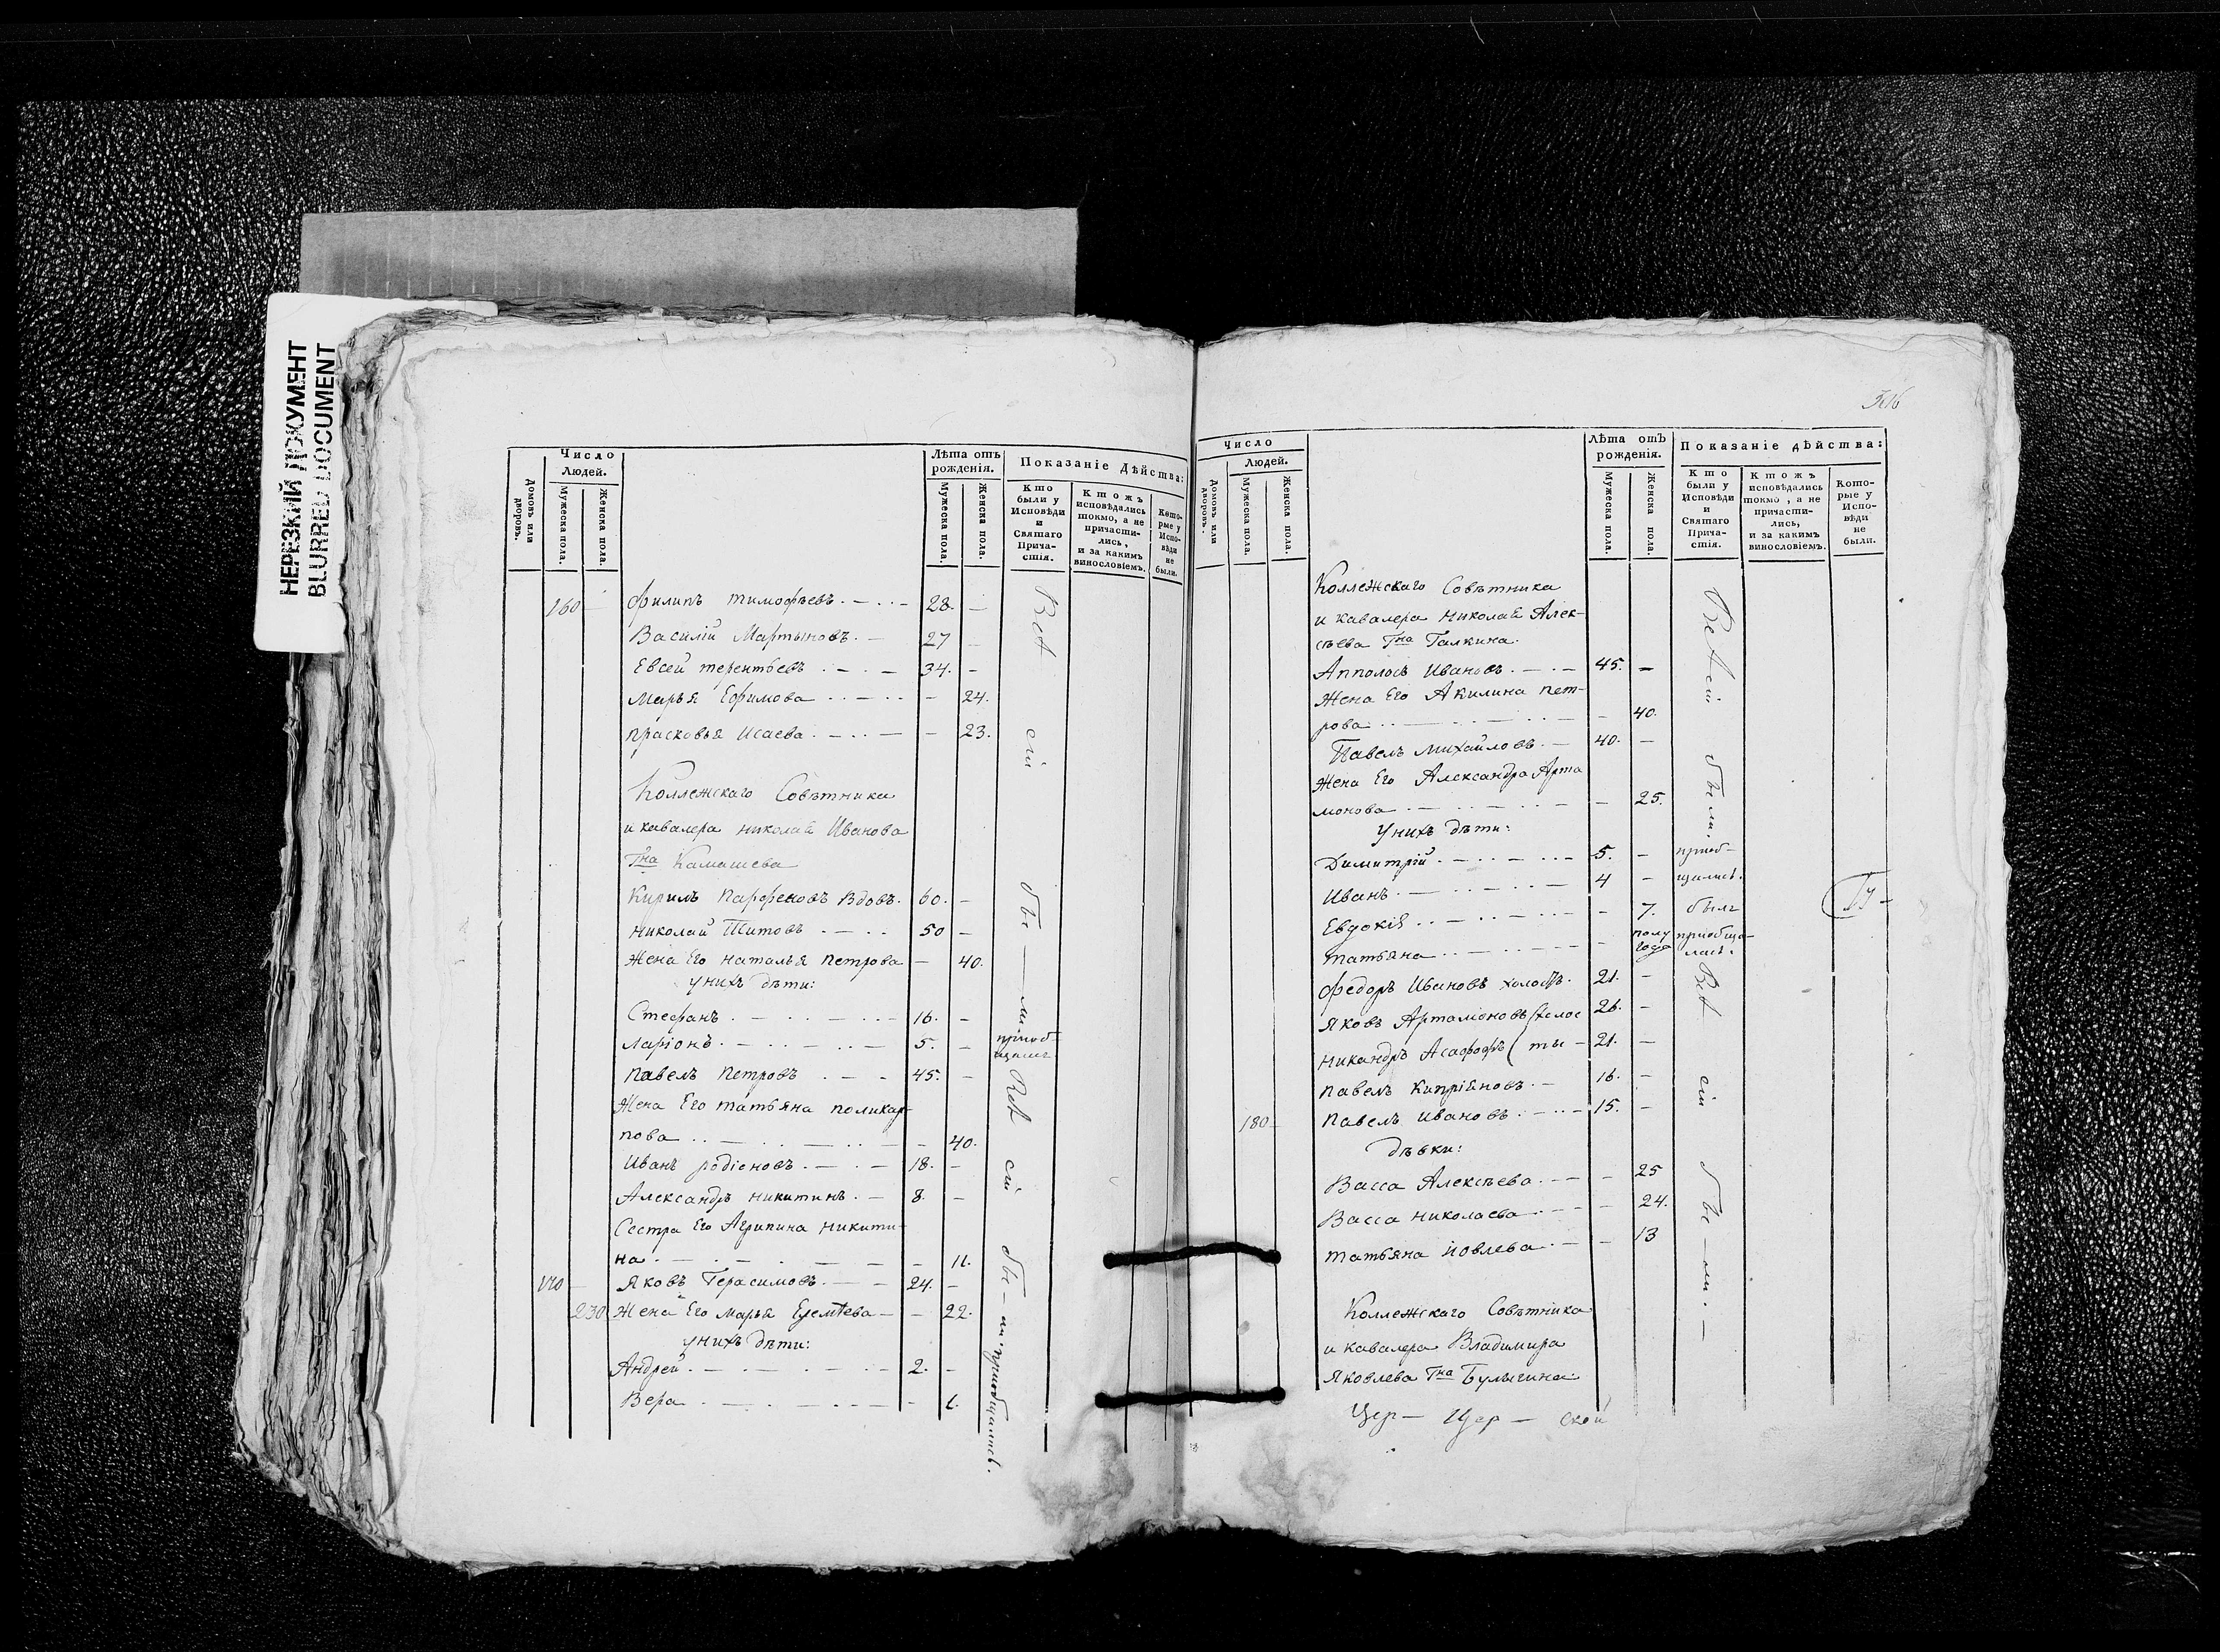 НЕРЕЗКИЙ ДОКУМЕНТ
BLURRED DOCUMENT
Число
Людей.
Домовъ или дворовъ.
Мужеска пола.
Женска пола.
Лѣта отъ рожденія.
Мужеска пола.
Женска пола.
Показаніе Дѣйства:
Кто были у Исповѣди и Святаго Прича-стія.
Ктожъ исповѣдались токмо, а не причасти-лись, и за какимъ винословіемъ.
Кото-рые у Испо-вѣди не были.
160 – Филипъ Тимофѣевъ 28. –
Василій Мартыновъ. 27 –
Евсей Терентьевъ 34. –
Марья Ефимова – 24.
Прасковья Исаева – 23.
Коллежскаго Совѣтника
и кавалера Николая Иванова
Гна Камашева
Кирилъ Парфеновъ Вдовъ. 60. –
Николай Титовъ 50 –
Жена Его Наталья Петрова – 40.
У нихъ дѣти:
Стефанъ 16. –
Ларіонъ 5. –
Павелъ Петровъ 45. –
Жена Его Татьяна Поликар-
пова – 40.
Иванъ Родіоновъ 18. –
Александръ Никитинъ 8. –
Сестра Его Агрипина Никити-
на – 11.
170 – Яковъ Герасимовъ 24. –
230 Жена Его Марья – 22.
У нихъ дѣти:
Андрей 2. –
Вера – 1.
Всѣ сіи бы – ли.
приоб-
щался
Всѣ сіи бы – ли.
приобщались.
Число
Людей.
Домовъ или дворовъ.
Мужеска пола.
Женска пола.
Лѣта отъ рожденія.
Мужеска пола.
Женска пола.
Показаніе дѣйства:
Кто были у Исповѣди и Святаго Прича-стія.
Ктожъ исповѣдались токмо, а не причасти-лись, и за какимъ винословіемъ.
Кото-рые у Испо-вѣди не были.
Коллежскаго Совѣтника
и кавалера Николая Алек-
сѣева Гна Галкина.
Апполосъ Ивановъ 45. –
Жена Его Акилина Пет-
рова – 40.
Павелъ Михайловъ 40. –
Жена Его Александра Арта
монова – 25.
У нихъ дѣти:
Димитрій 5. –
Иванъ 4 –
Евдокія – 7.
Татьяна – полу года
Федоръ Ивановъ холостъ. 21. –
Яковъ Артамоновъ (холос 26. –
Никандръ Асафофъ ( ты – 21. –
Павелъ Кипріяновъ 16. –
180 – Павелъ Ивановъ 15. –
Дѣвки:
Васса Алексѣева – 25
Васса Николаева – 24.
Татьяна Иовлева – 13
Коллежскаго Совѣтника
и кавалера Владимира
Яковлева Гна Булыгина.
Всѣ сіи были.
приоб-
щались.
была
приобща-
лась.
Всѣ сіи бы – ли. –
Цер – Цер – ской